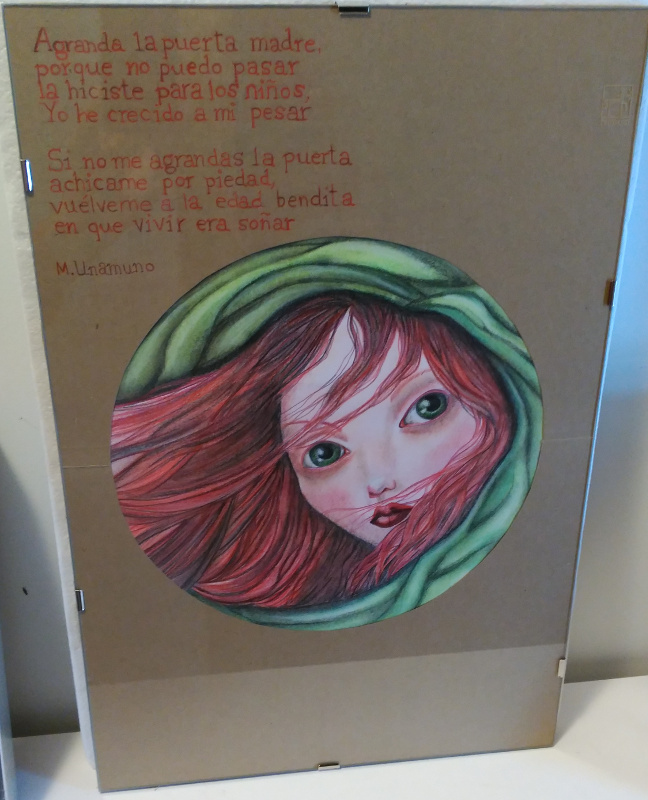 Agranda la puerta madre,
porque no puedo pasar
la hiciste para los niños,
Yo he crecido a mi pesar
Si no me agrandas la puerta
achicame por piedad,
vuélveme a la edad bendita
en que vivir era soñar
M. Unamuno